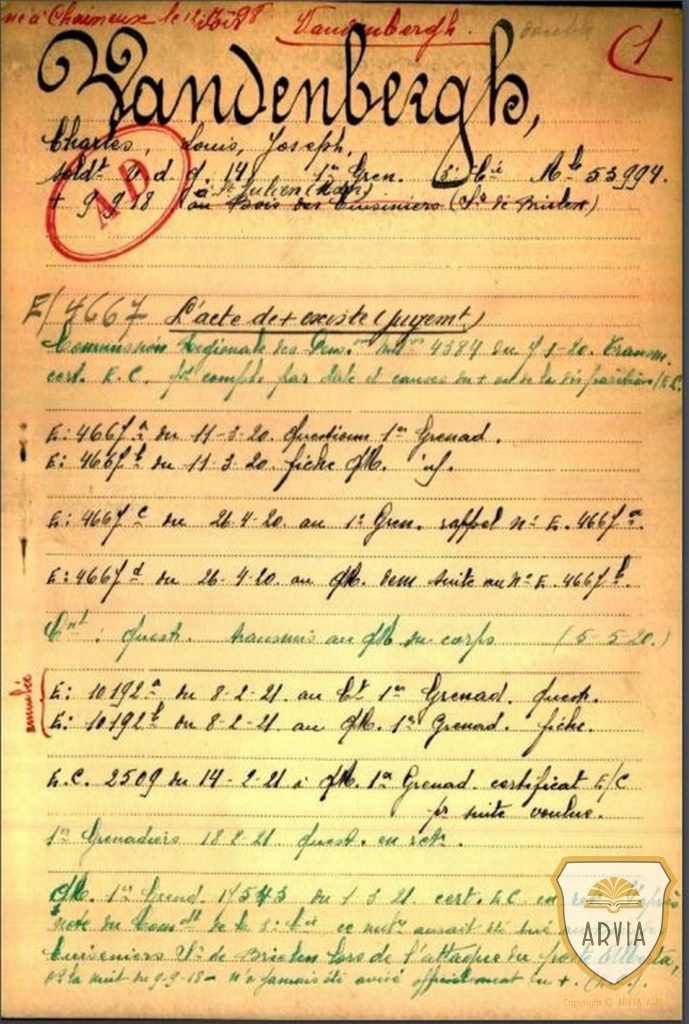 né à Chaineux le 12 98
Vandenbergh.
double
C1
Vandenbergh,
Charles, Louis, Joseph,
sold^t v. d. g. 14. 1^er Gren. C^ie M^le 53994.
AD
à St Julien
+ 9-9-18 (au Bois des Cuisiniers (S^r de Brielen)
E/4667 L'acte de + existe (jugem^t)
Commission Régionale des 4384 du 7-1-20. Transm.
cert. E.C. compte par date et causes du + ou de la disparition
E: 4667 a du 11-3-20. Questionn 1^er Grenad.
E: 4667 b du 11-3-20. fiche QM.
E: 4667 c du 26-4-20. au 1^r Gren. rappel n° E. 4667 a.
E: 4667 d du 26-4-20 au QM. dem suite au N° E. 4667 b.
C^nt: Quest. transmis au QM du corps (5-5-20.)
annulée
E: 10192 a du 8-2-21. au C^t 1^er Grenad. Quest.
E: 10192 b du 8-2-21. au QM. 1^er Grenad. fiche.
E.C. 2509 du 14-2-21 à QM. 1^er Grenad. certificat E/C
p^r suite voulue.
1^er Grenadiers 18-2-21. Quest. en ret^r.
QM. 1^er Grend. 1/545 du 1-3-21. cert. E.C. en
note du Com^dt de la C^ie ce mil^re aurait été tué
Cuisiniers S^r de Brielen lors de l'attaque du
la nuit du 9-9-18 - n'a jamais été avisé officiellement du +.
ARVIA
Copyright © ARVIA ASBL